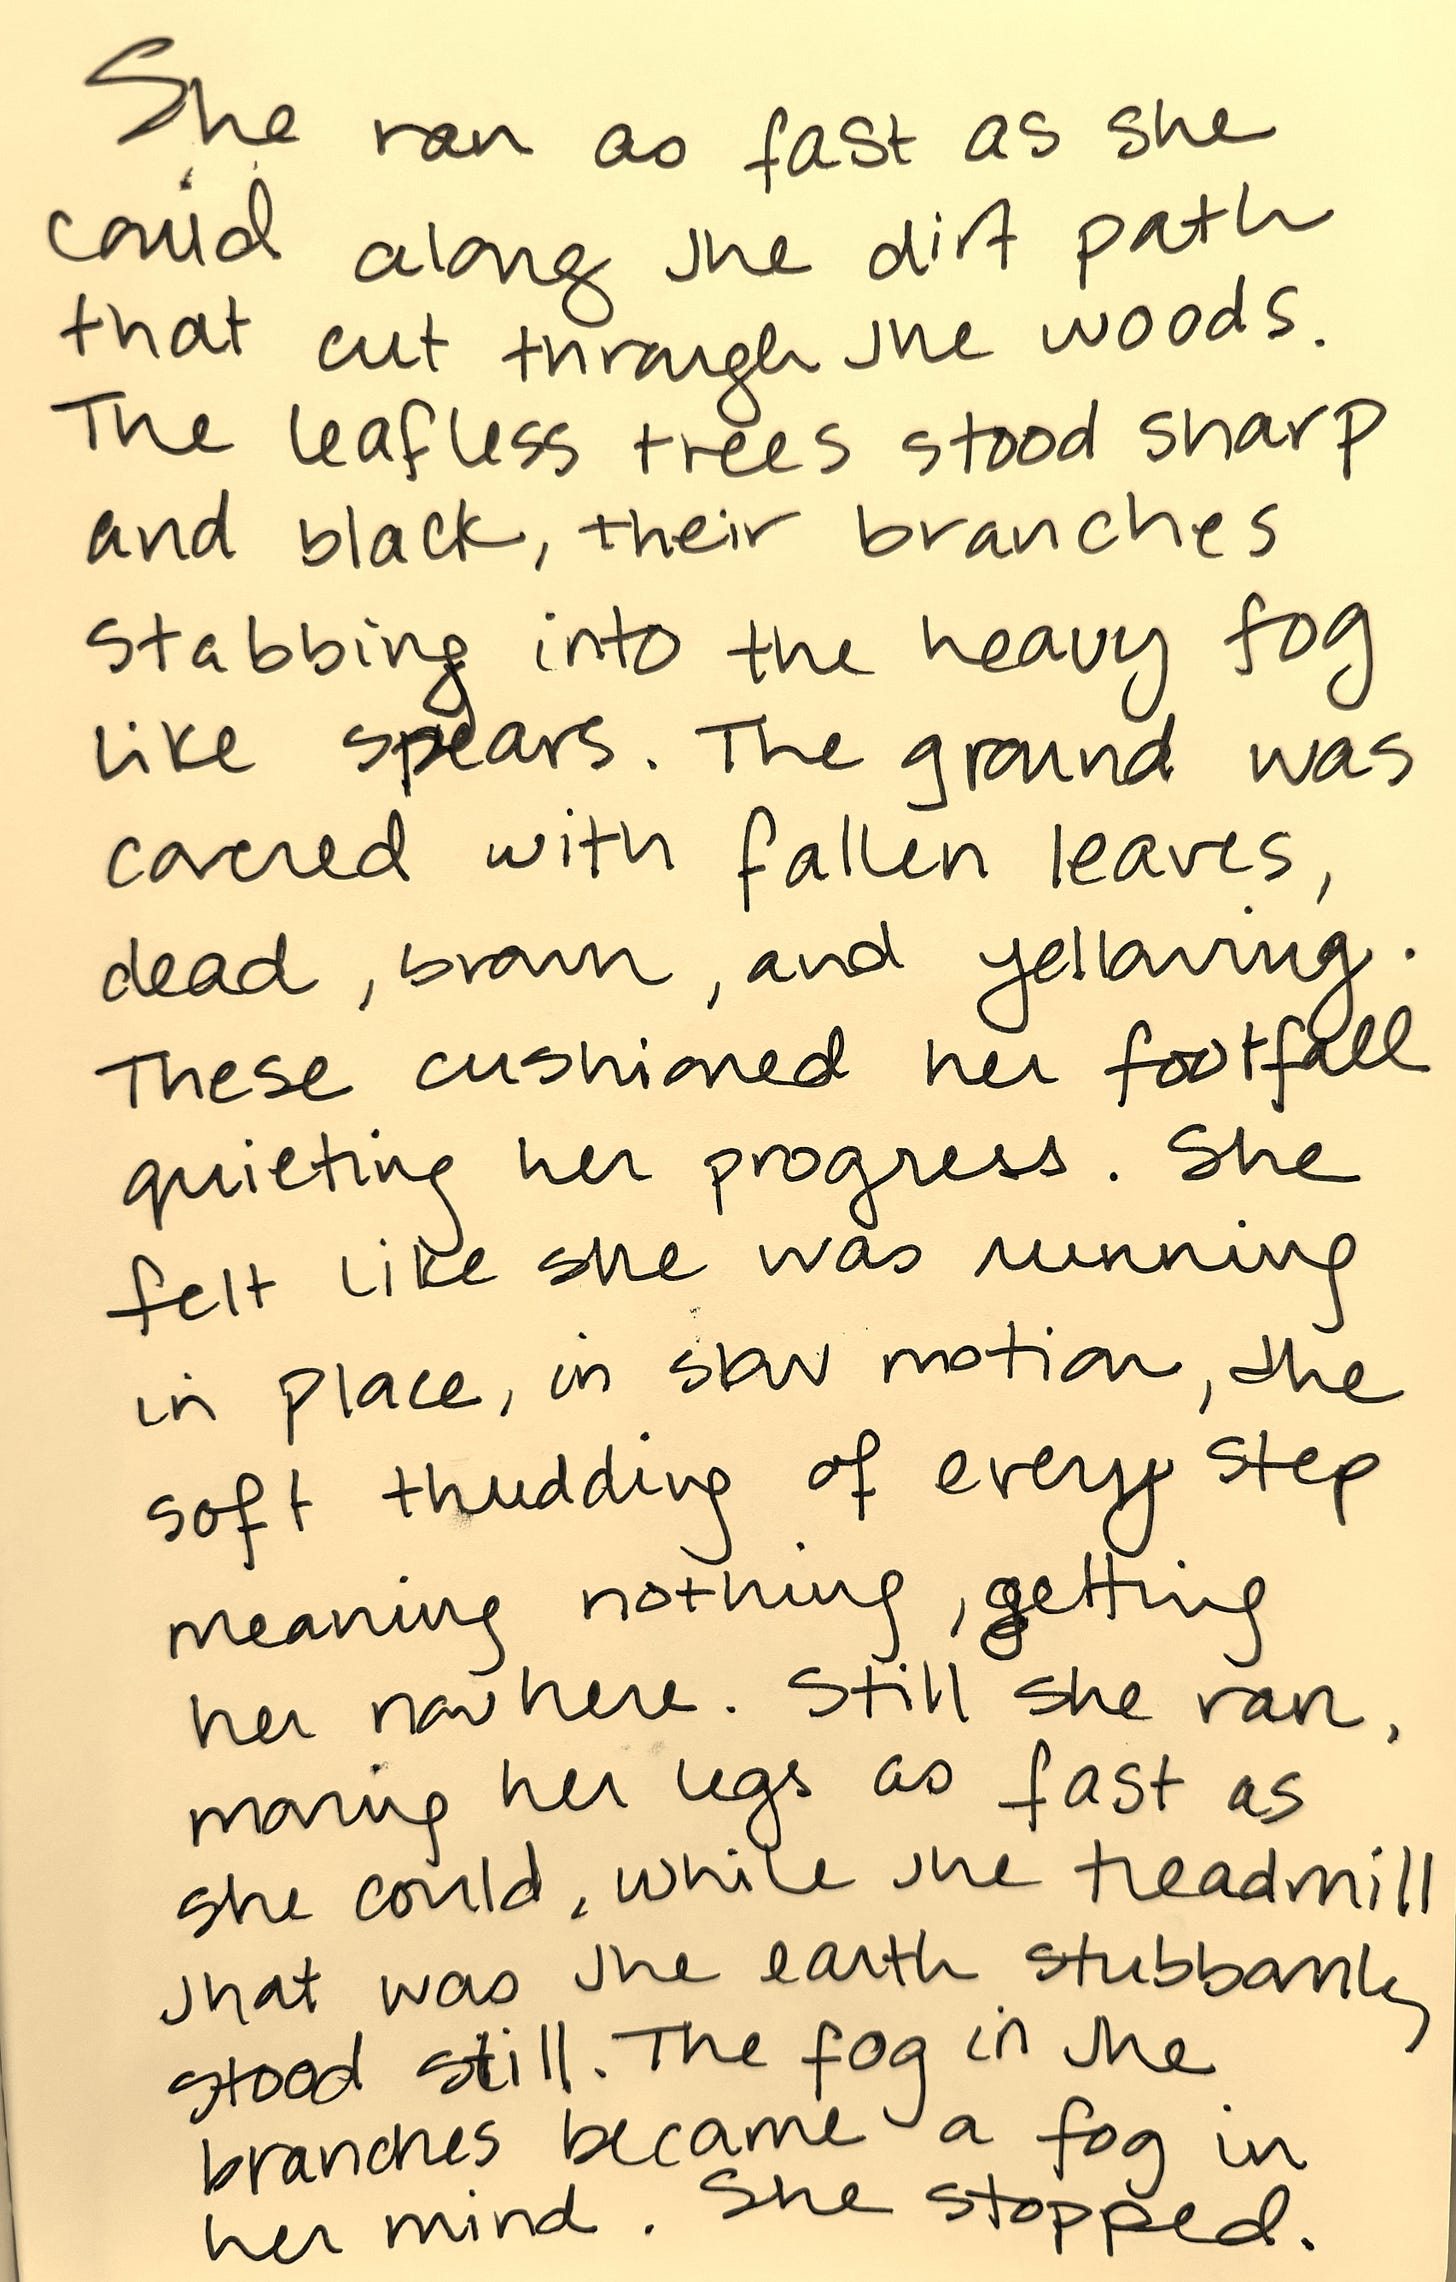 She ran as fast as she
could along the dirt path
that cut through the woods.
The leafless trees stood sharp
and black, their branches
stabbing into the heavy fog
like spears. The ground was
covered with fallen leaves,
dead, brown, and yellowing.
These cushioned her footfall
quieting her progress. She
felt like she was running
in place, in slow motion, the
soft thudding of every step
meaning nothing, getting
her nowhere. Still she ran,
moving her legs as fast as
she could, while the treadmill
that was the earth stubbornly
stood still. The fog in the
branches became a fog in
her mind. She stopped.